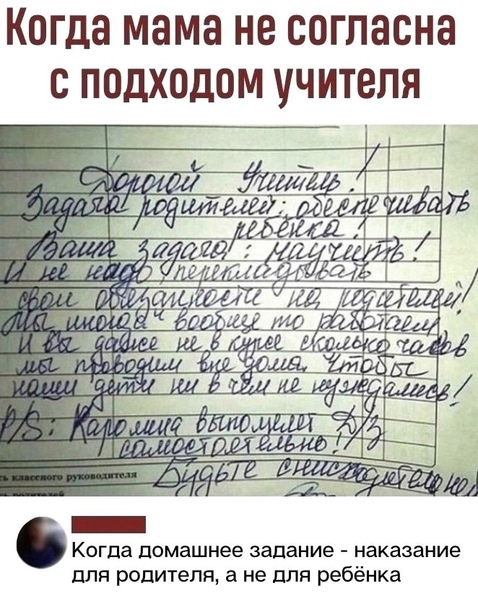 Когда мама не согласна
с подходом учителя
Дорогой Учитель!
Задача родителей: обеспечивать
ребёнка!
Ваша задача: научить!
И не надо перекладывать
свои обязанности на родителей!
Мы "иногда" вообще то работаем
И вы даже не в курсе сколько часов
мы проводим вне дома, чтобы
наши дети ни в чём не нуждались!
P/S: Каролина выполняет Д/З
самостоятельно!
ь классного руководителя
Будьте снисходительно
Когда домашнее задание - наказание
для родителя, а не для ребёнка